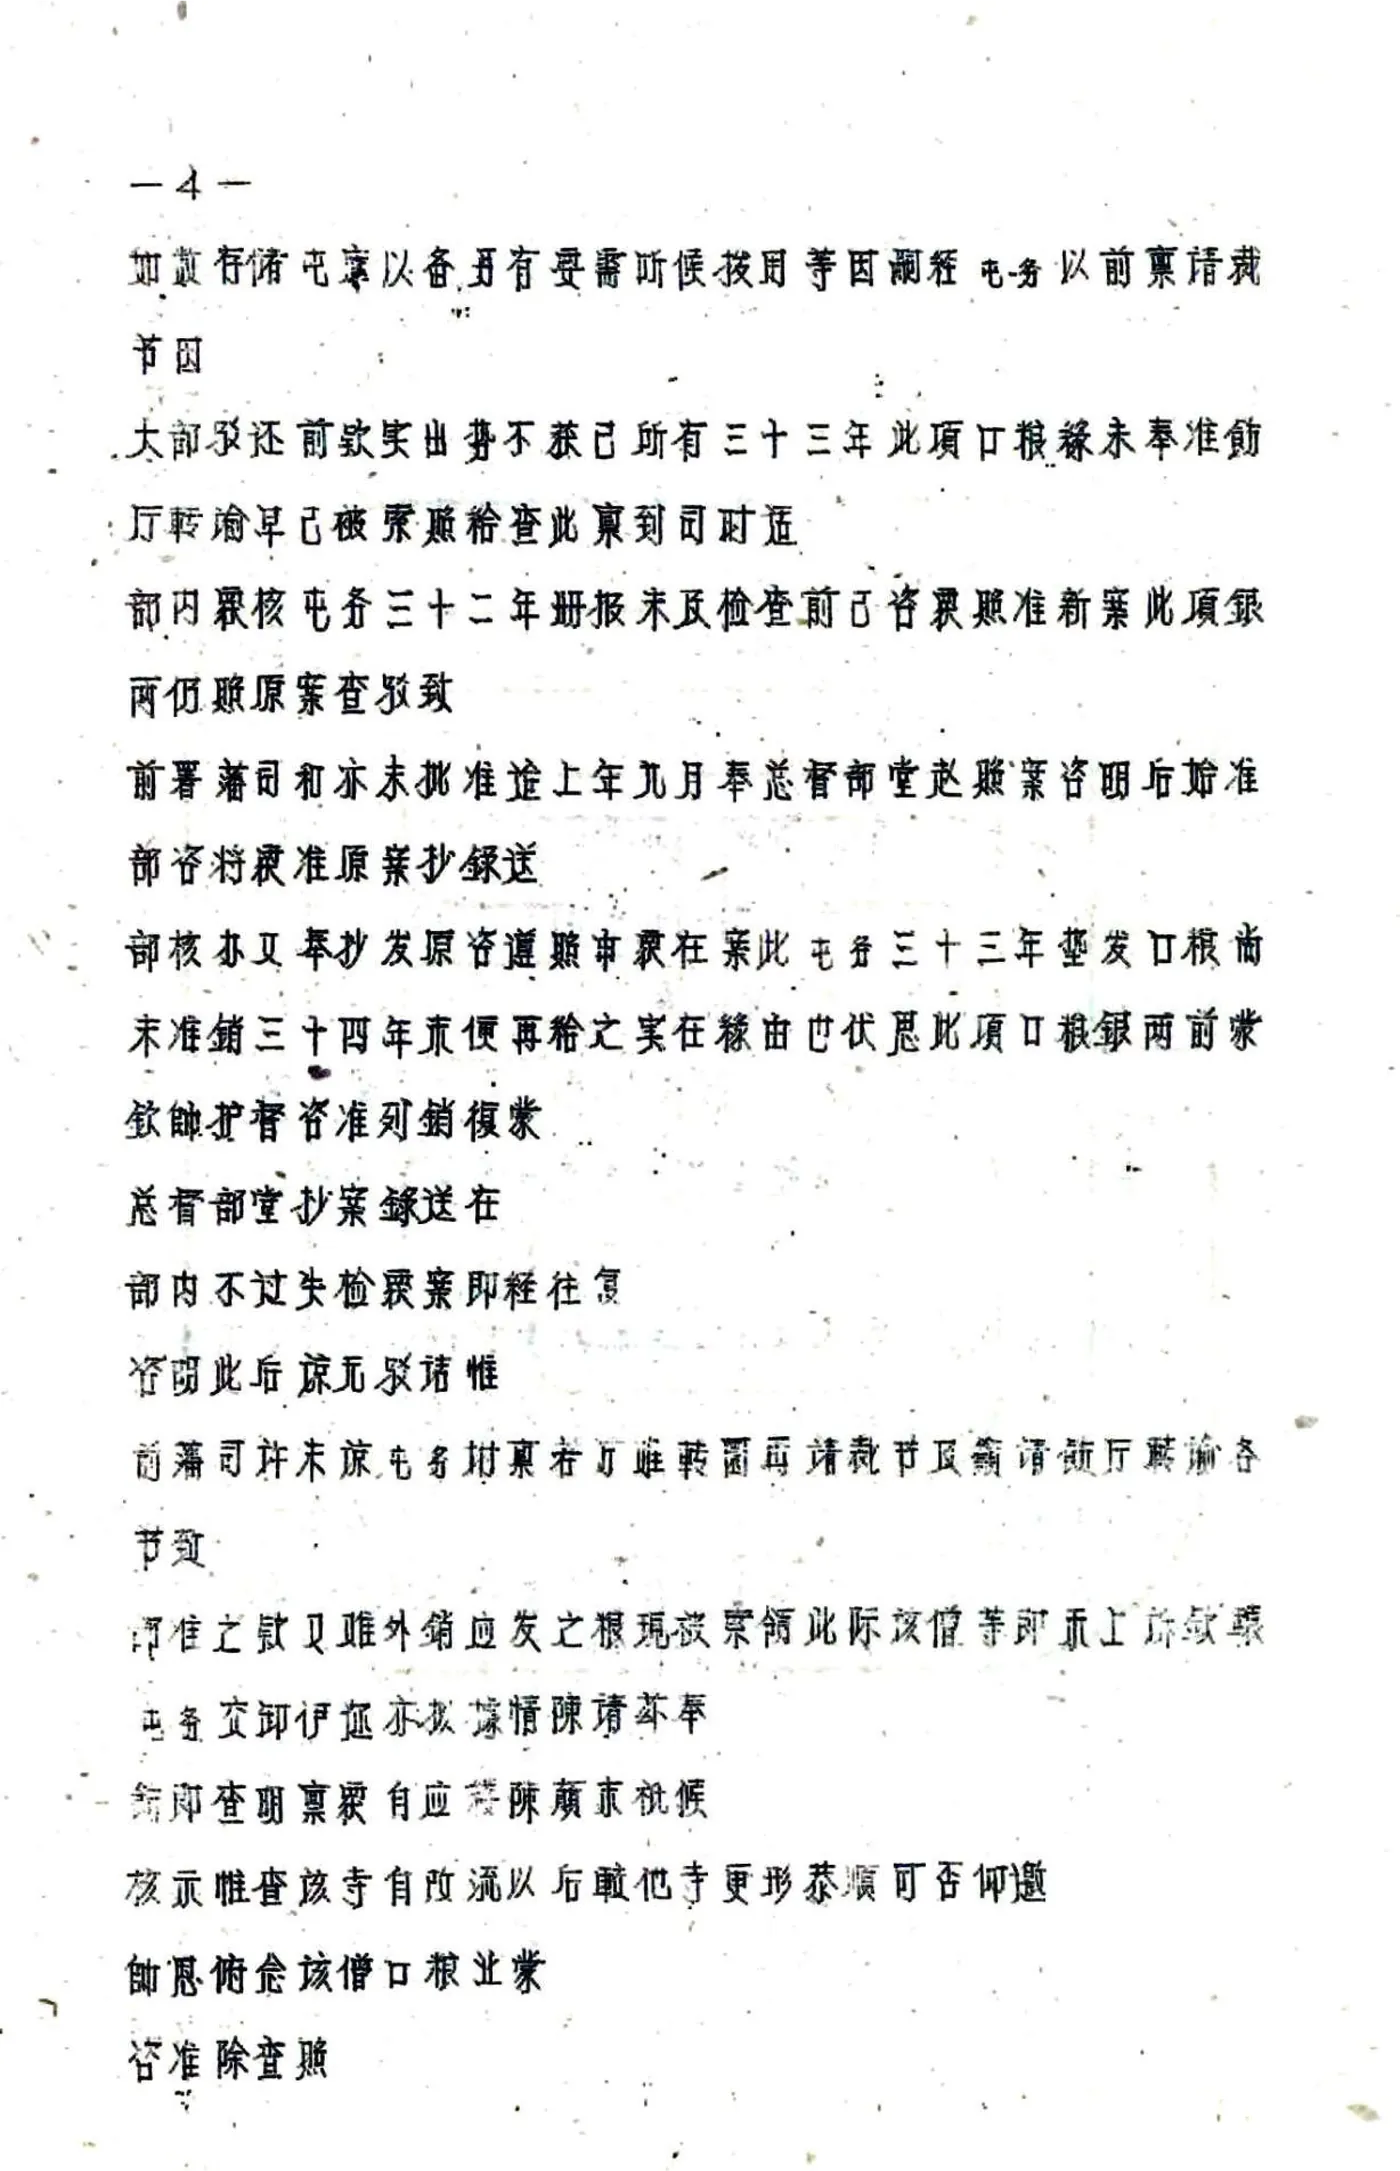 —4—
如数存储屯库以备另有要需听候拨用等因嗣经屯务以前禀请裁
节因
大部驳还前欵实出势不获已所有三十三年此项口粮缘未奉准飭
厅转谕早已被索照给查此禀到司时适
部内覆核屯务三十二年册报未及检查前已咨覆照准新案此項銀
两仍照原案查驳致
前署藩司和亦未批准迨上年九月奉总督部堂赵照案咨明后始准
部咨将覆准原案抄錄送
部核办又奉抄发原咨遵照申覆在案此屯务三十三年垫发口粮尚
未准銷三十四年未便再给之实在缘由也伏思此項口粮銀两前蒙
钦帥护督咨准列銷復蒙
总督部堂抄案錄送在
部内不过失检覆案即经往复
咨明此后谅无驳诘惟
前藩司许未谅屯务坿禀若厅难转圜再请裁节及籲请飭厅转谕各
节致
部准之欵又难外銷应发之粮現被索领此际该僧等即未上诉欽轅
屯务交卸伊迩亦拟據情陳请茲奉
飭即查明禀覆自应缕陳颠末祇候
核示惟查该寺自改流以后較他寺更形恭順可否仰邀
帥恩俯念该僧口粮业蒙
咨准除查照